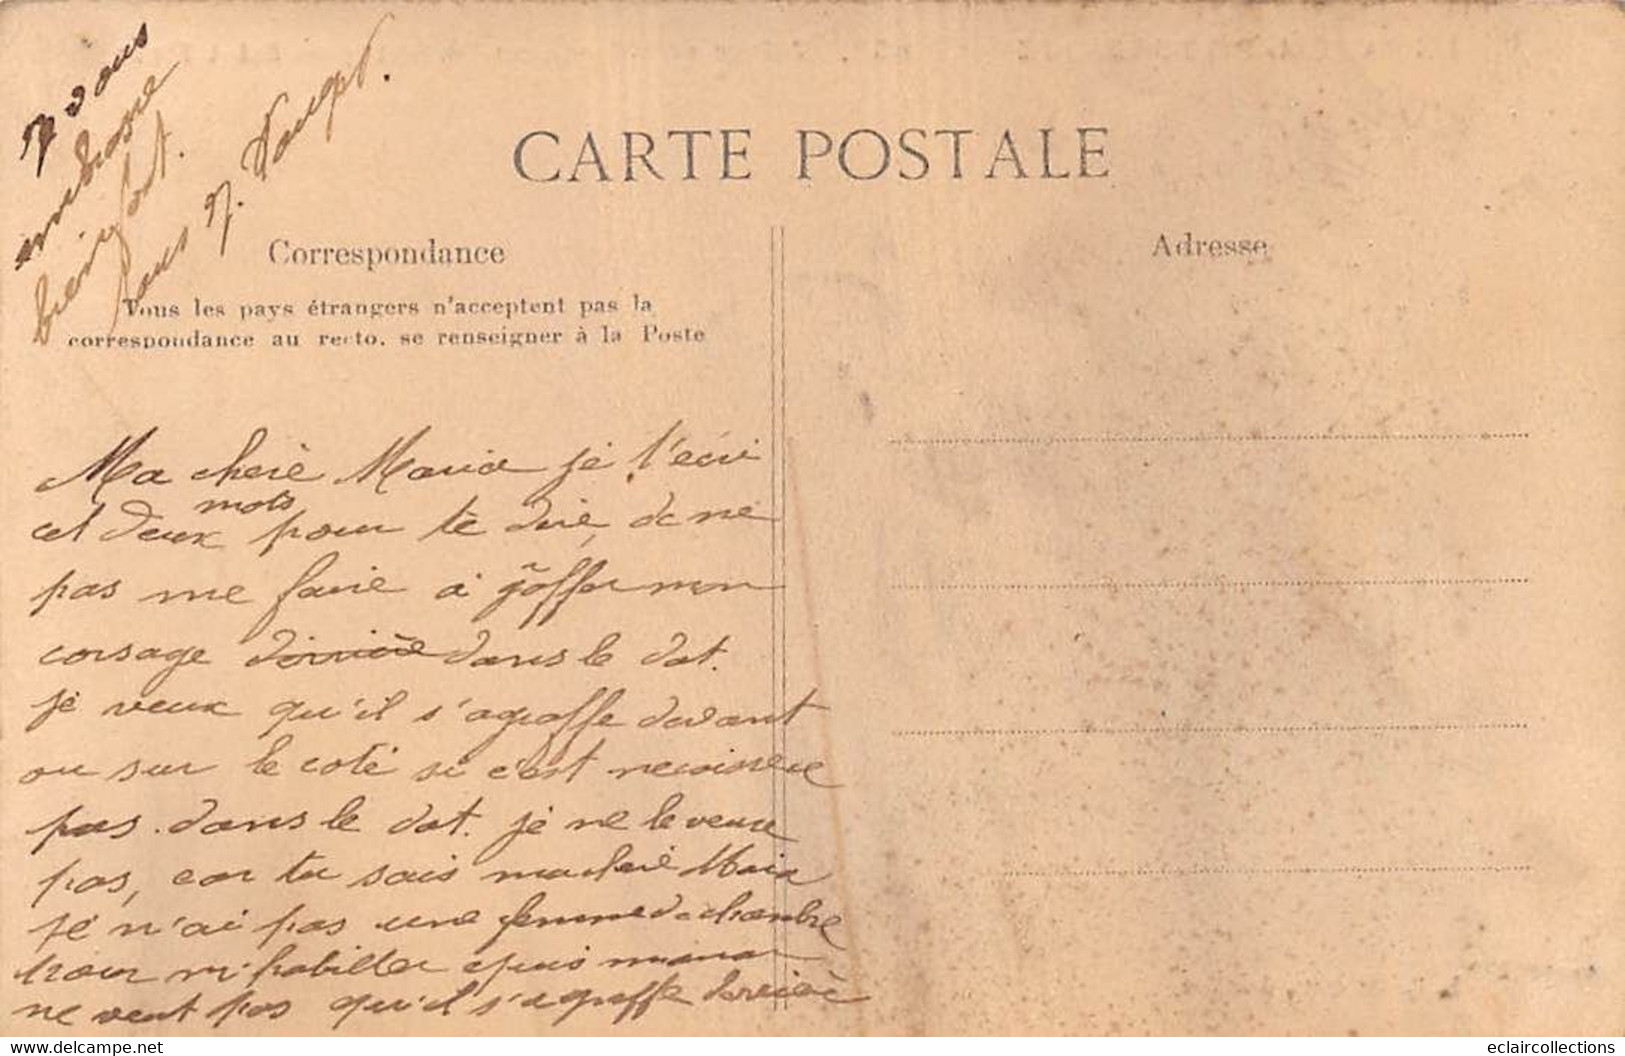 CARTE POSTALE
Correspondance
Adresse
Tous les pays étrangers n'acceptent pas la
correspondance au recto. se renseigner à la Poste
Ma cheré Maria je t'écri
cet deux mots pour te dire, de ne
pas me faire à gaffer mon
corsage derrière dans le dot.
je veux qu'il s'agraffe devant
ou sur le coté si c'est necoissere
pas. dans le dot. je ne le veux
pas, car tu sais macheré Maia
je n'ai pas une femmedechambre
pour m'habiller epuis maman
ne veut pas qu'il s'agraffe derrière
embrasse
bien fort.
www.delcampe.net
eclaircollections